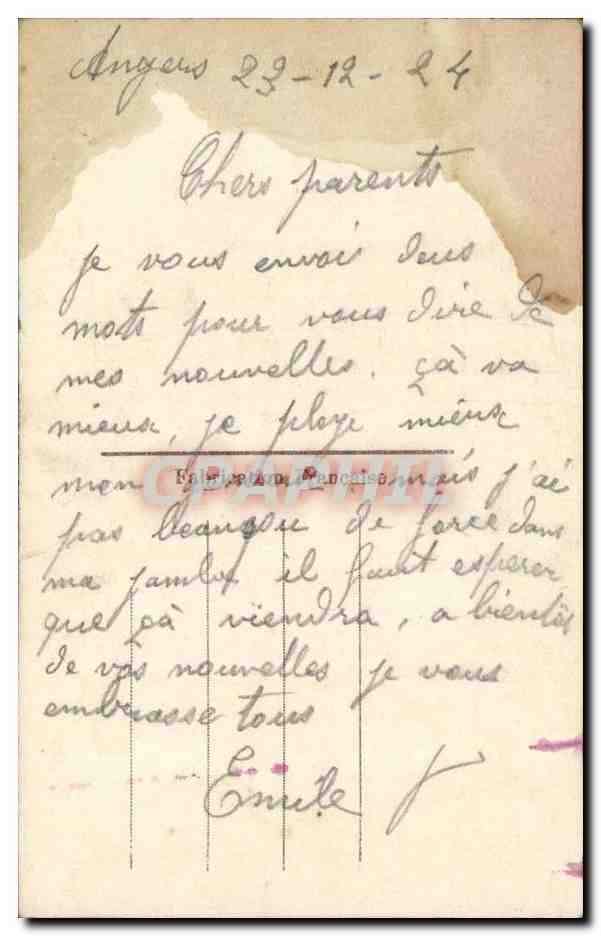 Angers 23-12-24
Chers parents
je vous envoie deus
mots pour vous dire de
mes nouvelles. çà va
mieux, je ploye mieux
Fabrication Française
CPAPHIL
mon genou, mais j'ai
pas beaucou de force dans
ma jambe il faut esperer
que çà viendra, a bientôt
de vos nouvelles je vous
embrasse tous
Emile